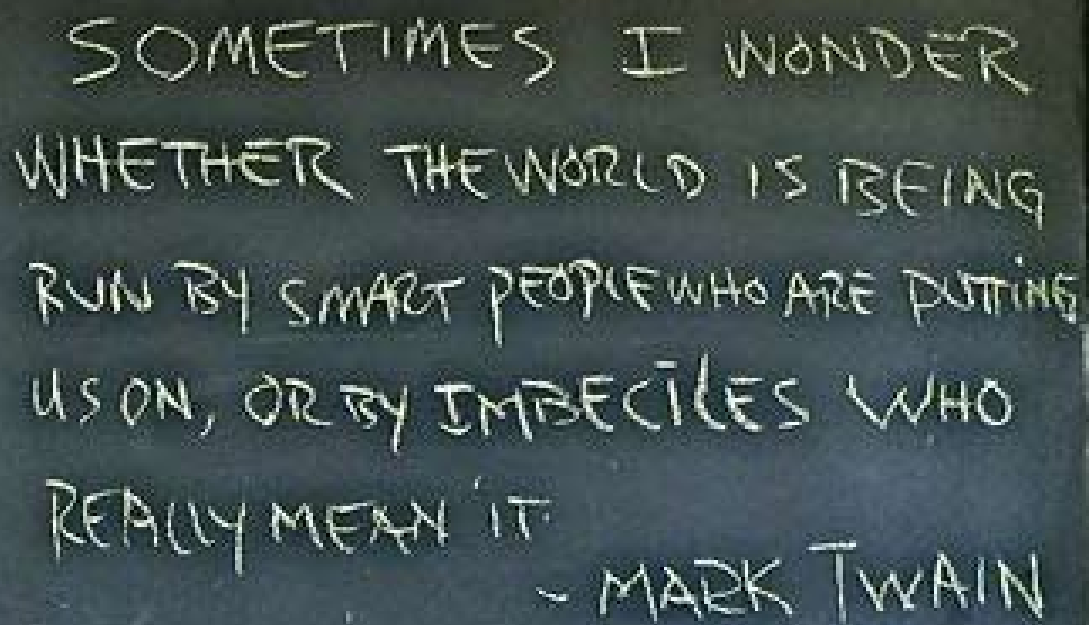 SOMETIMES I WONDER
WHETHER THE WORLD IS BEING
RUN BY SMART PEOPLE WHO ARE PUTTING
US ON, OR BY IMBECILES WHO
REALLY MEAN IT.
- MARK TWAIN